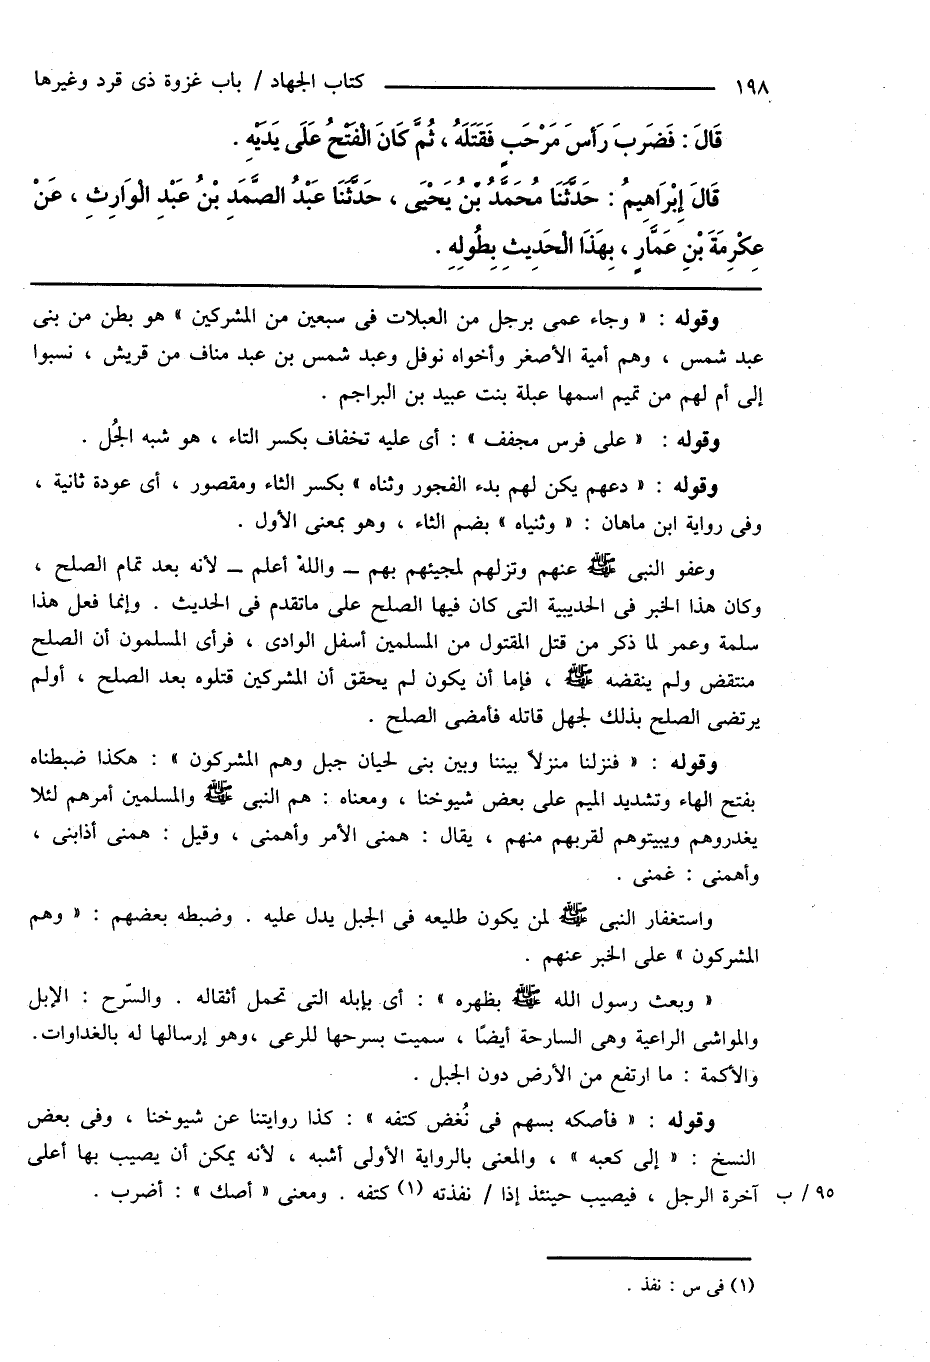 ١٩٨ كتاب الجهاد / باب غزوة ذى قرد وغيرها
قَالَ : فَضَرَبَ رَأْسَ مَرْحَبٍ فَقَتَلَهُ ، ثُمَّ كَانَ الْفَتْحُ عَلَى يَدَيْهِ .
قَالَ إِبْرَاهِيمُ : حَدَّثَنَا مُحَمَّدُ بْنُ يَحْيَى ، حَدَّثَنَا عَبْدُ الصَّمَدِ بْنُ عَبْدِ الْوَارِثِ ، عَنْ
عِكْرِمَةَ بْنِ عَمَّارٍ ، بِهَذَا الْحَدِيثِ بِطُولِهِ .
وقوله : « وجاء عمى برجل من العبلات فى سبعين من المشركين » هو بطن من بنى
عبد شمس ، وهم أمية الأصغر وأخواه نوفل وعبد شمس بن عبد مناف من قريش ، نسبوا
إلى أم لهم من تميم اسمها عبلة بنت عبيد بن البراجم .
وقوله : « على فرس مجفف » : أى عليه تخفاف بكسر التاء ، هو شبه الجُل .
وقوله : « دعهم يكن لهم بدء الفجور وثناه » بكسر الثاء ومقصور ، أى عودة ثانية ،
وفى رواية ابن ماهان : « وثنياه » بضم الثاء ، وهو بمعنى الأول .
وعفو النبى ﷺ عنهم وتزلهم لمجيئهم بهم ــ واللهُ أعلم ــ لأنه بعد تمام الصلح ،
وكان هذا الخبر فى الحديبية التى كان فيها الصلح على ماتقدم فى الحديث . وإنما فعل هذا
سلمة وعمر لما ذكر من قتل المقتول من المسلمين أسفل الوادى ، فرأى المسلمون أن الصلح
منتقض ولم ينقضه ﷺ ، فإما أن يكون لم يحقق أن المشركين قتلوه بعد الصلح ، أولم
يرتضى الصلح بذلك لجهل قاتله فأمضى الصلح .
وقوله : « فنزلنا منزلاً بيننا وبين بنى لحيان جبل وهم المشركون » : هكذا ضبطناه
بفتح الهاء وتشديد الميم على بعض شيوخنا ، ومعناه : هم النبى ﷺ والمسلمين أمرهم لئلا
يغدروهم ويبيتوهم لقربهم منهم ، يقال : همنى الأمر وأهمنى ، وقيل : همنى أذابنى ،
وأهمنى : غمنى .
واستغفار النبى ﷺ لمن يكون طليعه فى الجبل يدل عليه . وضبطه بعضهم : « وهم
المشركون » على الخبر عنهم .
« وبعث رسول الله ﷺ بظهره » : أى بإبله التى تحمل أثقاله . والسّرح : الإبل
والمواشى الراعية وهى السارحة أيضًا ، سميت بسرحها للرعى ،وهو إرسالها له بالغداوات.
والأكمة : ما ارتفع من الأرض دون الجبل .
وقوله : « فأصكه بسهم فى نُغض كتفه » : كذا روايتنا عن شيوخنا ، وفى بعض
النسخ : « إلى كعبه » ، والمعنى بالرواية الأولى أشبه ، لأنه يمكن أن يصيب بها أعلى
٩٥ / ب آخرة الرجل ، فيصيب حينئذ إذا / نفذته (١) كتفه . ومعنى « أصك » : أضرب .
(١) فى س : نفذ .